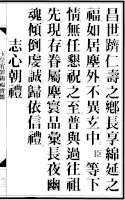 昌世躋仁壽之鄉長享綿延之
福如居塵外不異玄中臣等下
情無任懇祝之至普與過往祖
先現存眷屬塵寰品彙長夜幽
魂傾倒虔誠歸依信禮
志心朝禮